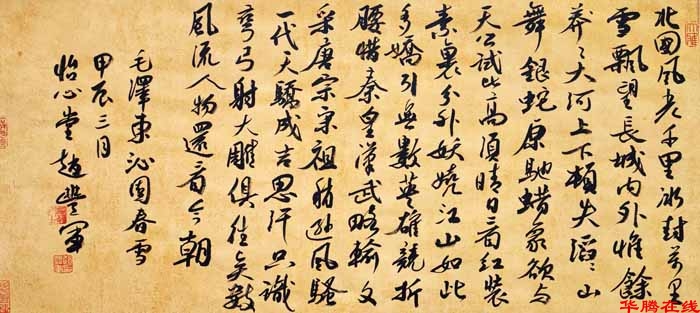 北国風光千里冰封萬里
雪飄望長城内外惟餘
莽〻大河上下頓失滔〻山
舞銀蛇原馳蠟象欲与
天公試比高須晴日看紅裝
素裹分外妖嬈江山如此
多嬌引無數英雄競折
腰惜秦皇漢武略輸文
采唐宗宋祖稍遜風騷
一代天驕成吉思汗只識
彎弓射大雕俱往矣數
風流人物還看今朝
毛澤東沁園春雪
甲辰三月
怡心堂趙
华腾在线